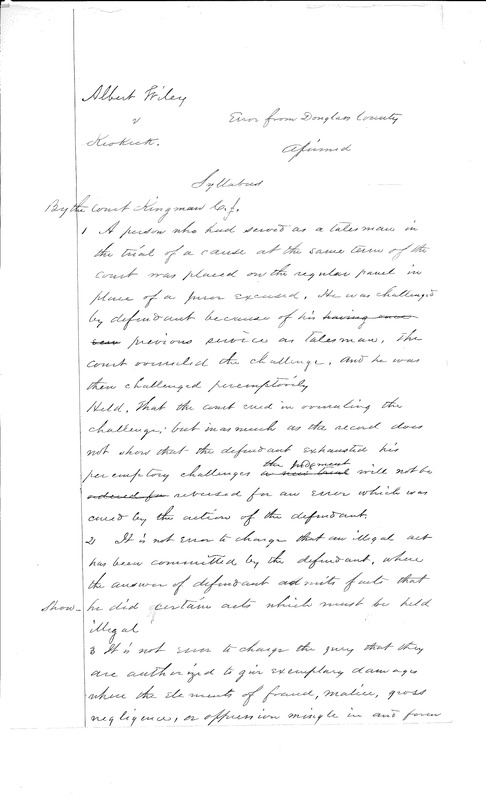 Albert Wiley
v
Keokuk.
Error from Douglass County
Affirmed
Syllabus
By the court Kingman C.J.
1 A person who had served as a talesman in
the trial of a cause at the same term of the
court was placed on the regular panel in
place of a juror excused. He was challenged
by defendant because of his having once
previous service as talesman. The
court overruled the challenge. And he was
then challenged peremptorily
Held, That the court erred in overruling the
challenge; but inasmuch as the record does
not show that the defendant exhausted his
peremptory challenges a new trial the Judgment will not be
ordered for reversed for an error which was
cured by the action of the defendant.
2 It is not error to charge that an illegal act
has been committed by the defendant, where
the answer of defendant admits facts that
Show - he did certain acts which must be held
illegal
3 It is not error to charge the jury that they
are authorized to give exemplary damages
where the elements of fraud, malice, gross
negligence, or oppression mingle in and form